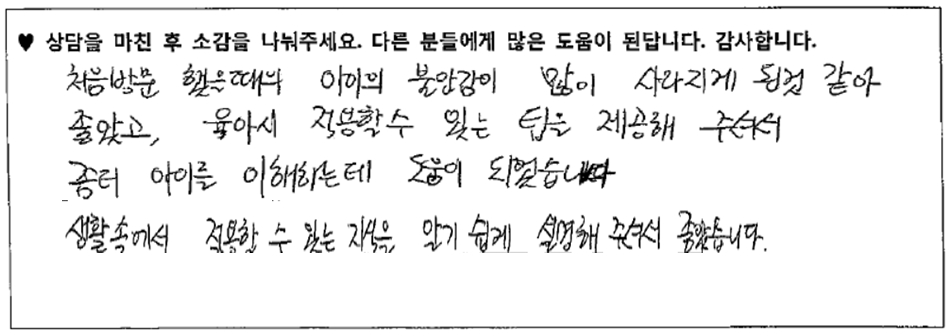 ♥ 상담을 마친 후 소감을 나눠주세요. 다른 분들에게 많은 도움이 된답니다. 감사합니다.
처음방문 했을때의 아이의 불안감이 많이 사라지게 된것 같아
좋았고, 육아시 적용할수 있는 팁을 제공해 주셔서
좀더 아이를 이해하는데 도움이 되었습니다
생활속에서 적용할 수 있는 지식을 알기 쉽게 설명해 주셔서 좋았습니다.